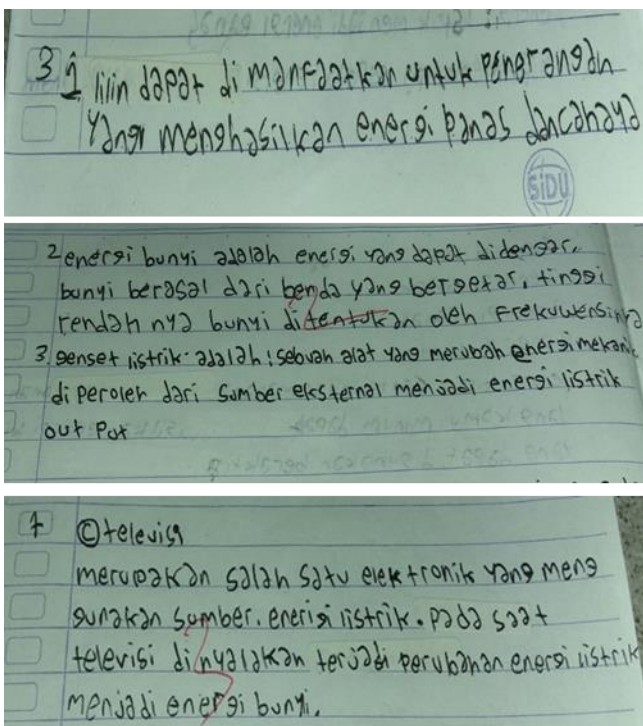 3 1 lilin dapat di manfaatkan untuk penerangan
yang menghasilkan energi panas dan cahaya
SiDU
2 energi bunyi adalah energi yang dapat didengar.
bunyi berasal dari benda yang bergetar, tinggi
rendah nya bunyi ditentukan oleh Frekuwensinya
3. genset listrik adalah: sebuah alat yang merubah energi mekanik
di peroleh dari sumber eksternal menjadi energi listrik
out Put
7 © televisi
merupakan salah satu elektronik yang meng
gunakan sumber. enerigi listrik. pada saat
televisi dinyalakan terjadi perubahan energi listrik
menjadi energi bunyi.